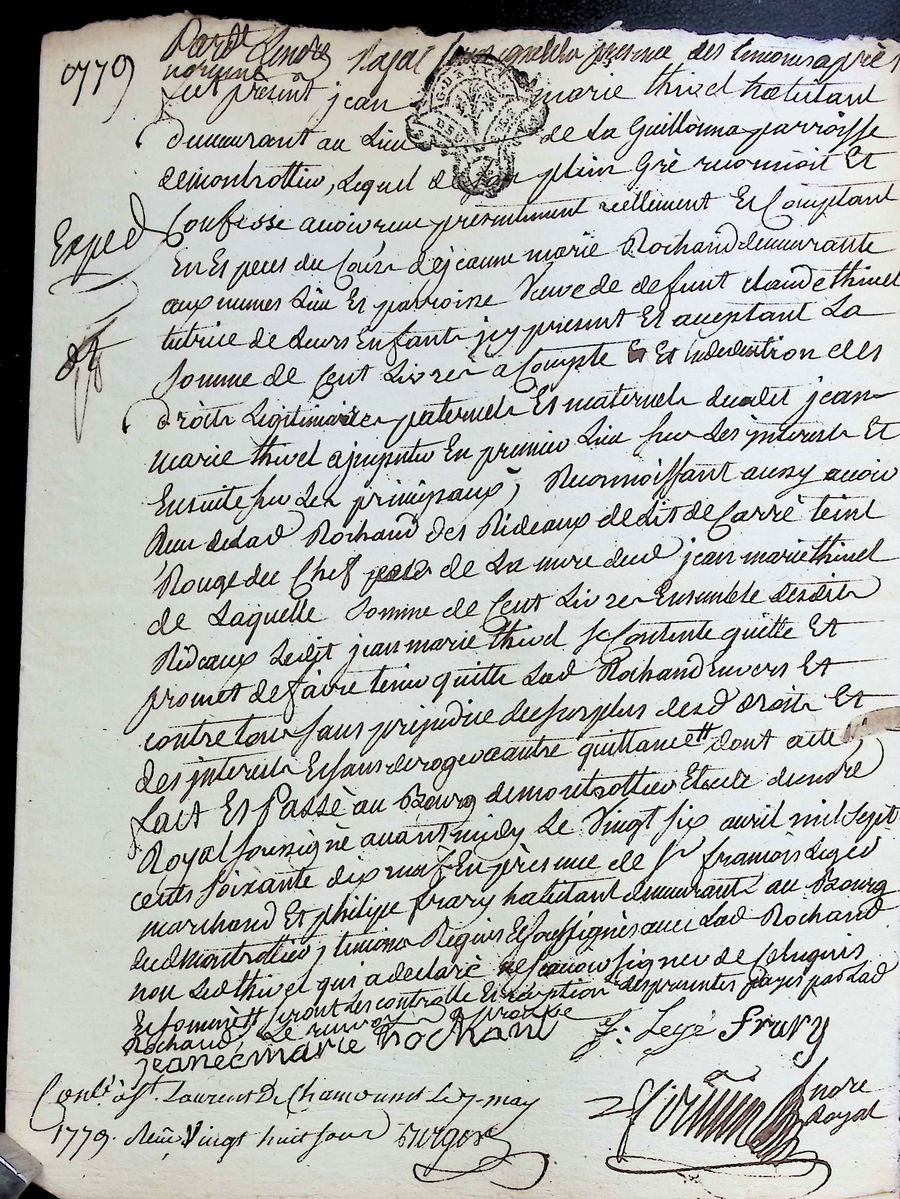 1779
Pard. Le nore Royal soussigné en presence des temoins après
nommé
fut present jean marie thivel habitant
demeurant au Lieu de La Guillonna parroisse
de montrottier, Lequel de son plein Gré reconnoit Et
Exped
Confesse avoir reçu presentement reellement Et Comptant
En Especes du Cours de jeanne marie Rochand demeurante
aux memes Lieu Et parroisse Veuve de defunt claude thivel
tutrice de Leurs Enfants icy present Et aceptant La
somme de Cent Livres a Compte Et En deduction des
droits Legitimaires paternels Et maternels dudit jean
marie thivel a imputer En premier Lieu sur Les interests Et
Ensuite sur Les principaux, Reconnoissant aussy avoir
Reçu de Lad Rochand des Rideaux de Lit de Carré teint
Rouge du Chef de La mere dud jean marie thivel
de Laquelle somme de Cent Livres Ensemble desdits
Rideaux Ledit jean marie thivel se Contente quitte Et
promet de faire tenir quitte Lad Rochand Envers Et
contre tous sans prejudice du surplus desd droits Et
des interests Et sans deroger a autre quittance dont acte,
fait Et Passé au Bourg de montrottier Etude du nore
Royal soussigné avant midy Le Vingt six avril mil sept
cents soixante dix neuf En presence de sr francois Leger
marchand Et philipe frary habitant demeurants au Bourg
dud montrottier, temoins Requis Et soussignés avec Lad Rochand
non Led thivel qui a declaré ne scavoir signer de Ce Enquis
Et sommé seront Les controlle Et expedition des presentes payés par Lad
Rochand, Le renvoy approuvé
jeane marie Rochand
f. Legé frary
nore
Royal
Contlé à St. Laurent De Chamousset Le 7. may
1779. Reçu Vingt huit sous